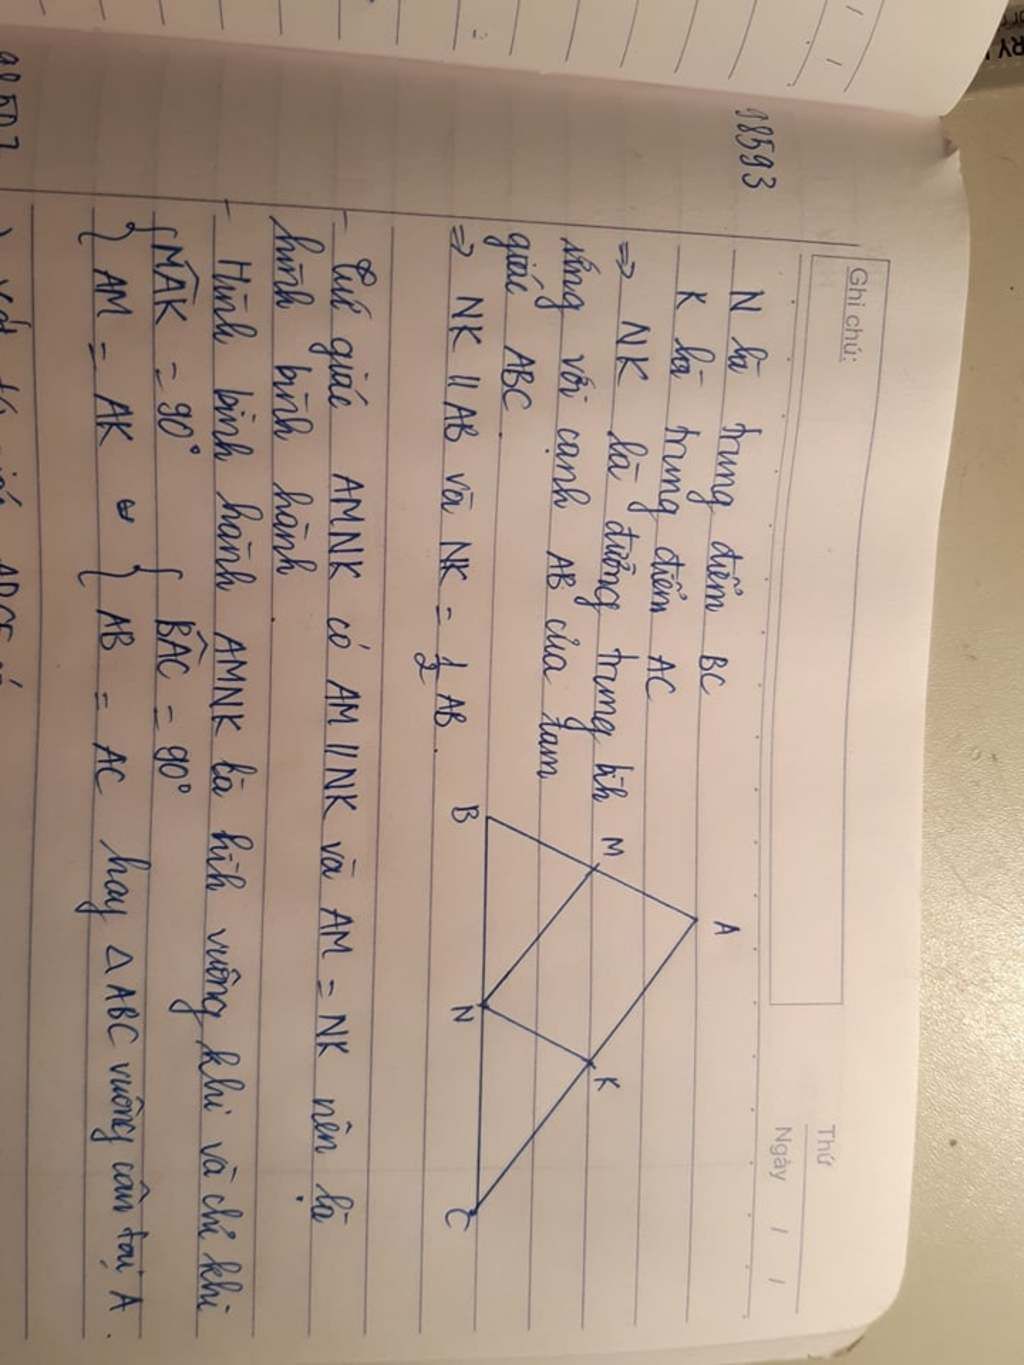 Ghi chú:
Thứ
Ngày / /
18593
N là trung điểm BC
K là trung điểm AC
⇒ NK là đường trung bìh
ứng với cạnh AB của tam
giác ABC
⇒ NK // AB và NK = 1/2 AB.
A
M
K
B
N
C
- Tứ giác AMNK có AM // NK và AM = NK nên là
hình bình hành
- Hình bình hành AMNK là hìh vuông khi và chỉ khi
{ MAK = 90° { BAC = 90°
AM = AK AB = AC hay Δ ABC vuông cân tại A.